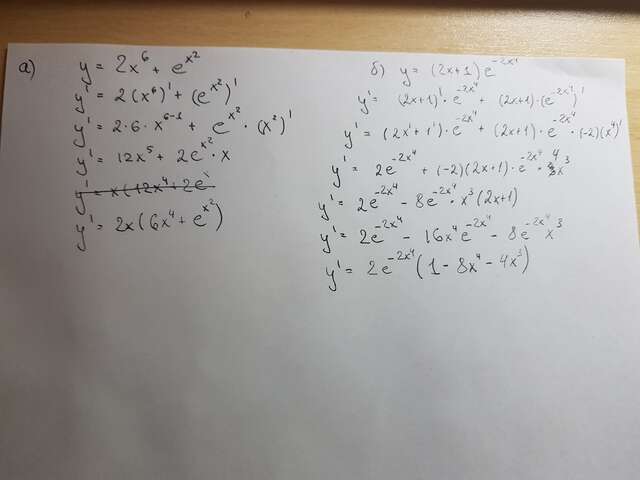 а)
y = 2x⁶ + e^{x²}
y' = 2(x⁶)' + (e^{x²})'
y' = 2·6·x^{6-1} + e^{x²}·(x²)'
y' = 12x⁵ + 2e^{x²}·x
y' = x(12x⁴ + 2e
y' = 2x(6x⁴ + e^{x²})
б) y = (2x+1)e^{-2x⁴}
y' = (2x+1)'·e^{-2x⁴} + (2x+1)·(e^{-2x⁴})'
y' = (2x'+1')·e^{-2x⁴} + (2x+1)·e^{-2x⁴}·(-2)(x⁴)'
y' = 2e^{-2x⁴} + (-2)(2x+1)·e^{-2x⁴}·4x³
y' = 2e^{-2x⁴} - 8e^{-2x⁴}·x³(2x+1)
y' = 2e^{-2x⁴} - 16x⁴e^{-2x⁴} - 8e^{-2x⁴}x³
y' = 2e^{-2x⁴}(1 - 8x⁴ - 4x³)